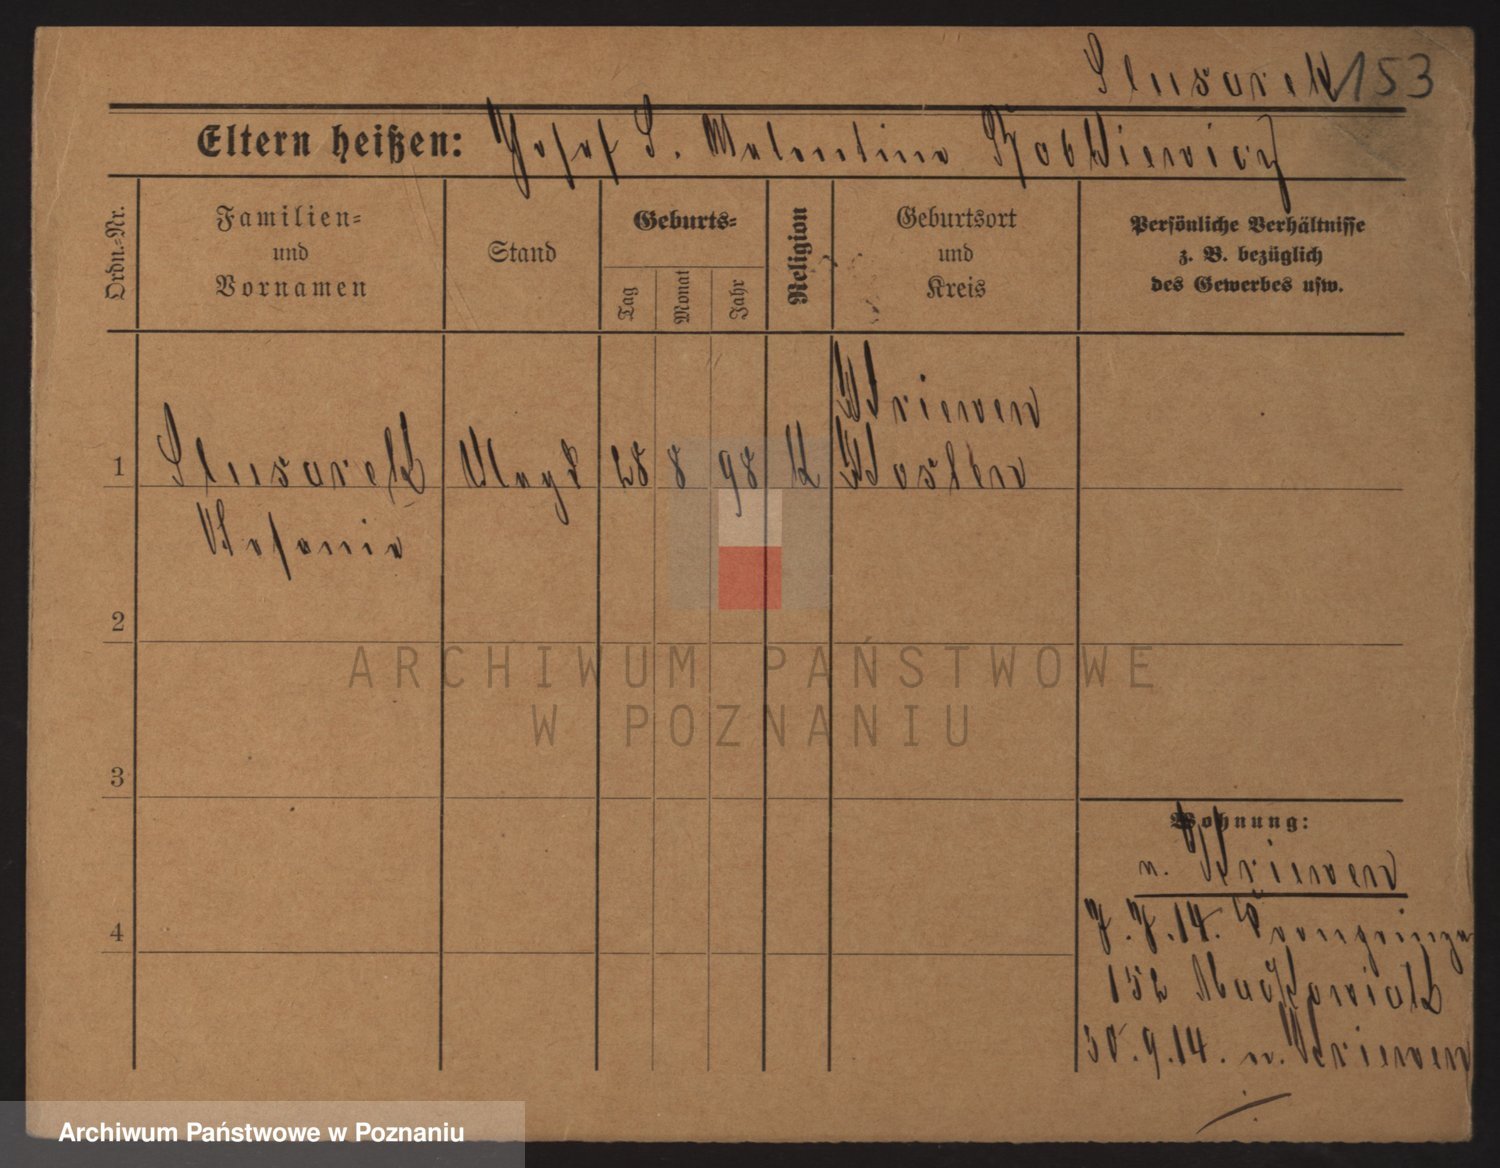 Slusarek 153
Eltern heißen: Josef S. Valentina Robkiewicz
Ordn.-Nr.
Familien-
und
Vornamen
Stand
Geburts-
Tag
Monat
Jahr
Religion
Geburtsort
und
Kreis
Persönliche Verhältnisse
z. B. bezüglich
des Gewerbes usw.
Kriewen
1 Slusarek Magd 28 8 98 K Kosten
Stefania
2
3
4
Wohnung:
n. Kriewen
7.7.14. Kronprinz
152 Maćkowiak
30.9.14. n. Kriewen
ARCHIWUM PAŃSTWOWE
W POZNANIU
Archiwum Państwowe w Poznaniu